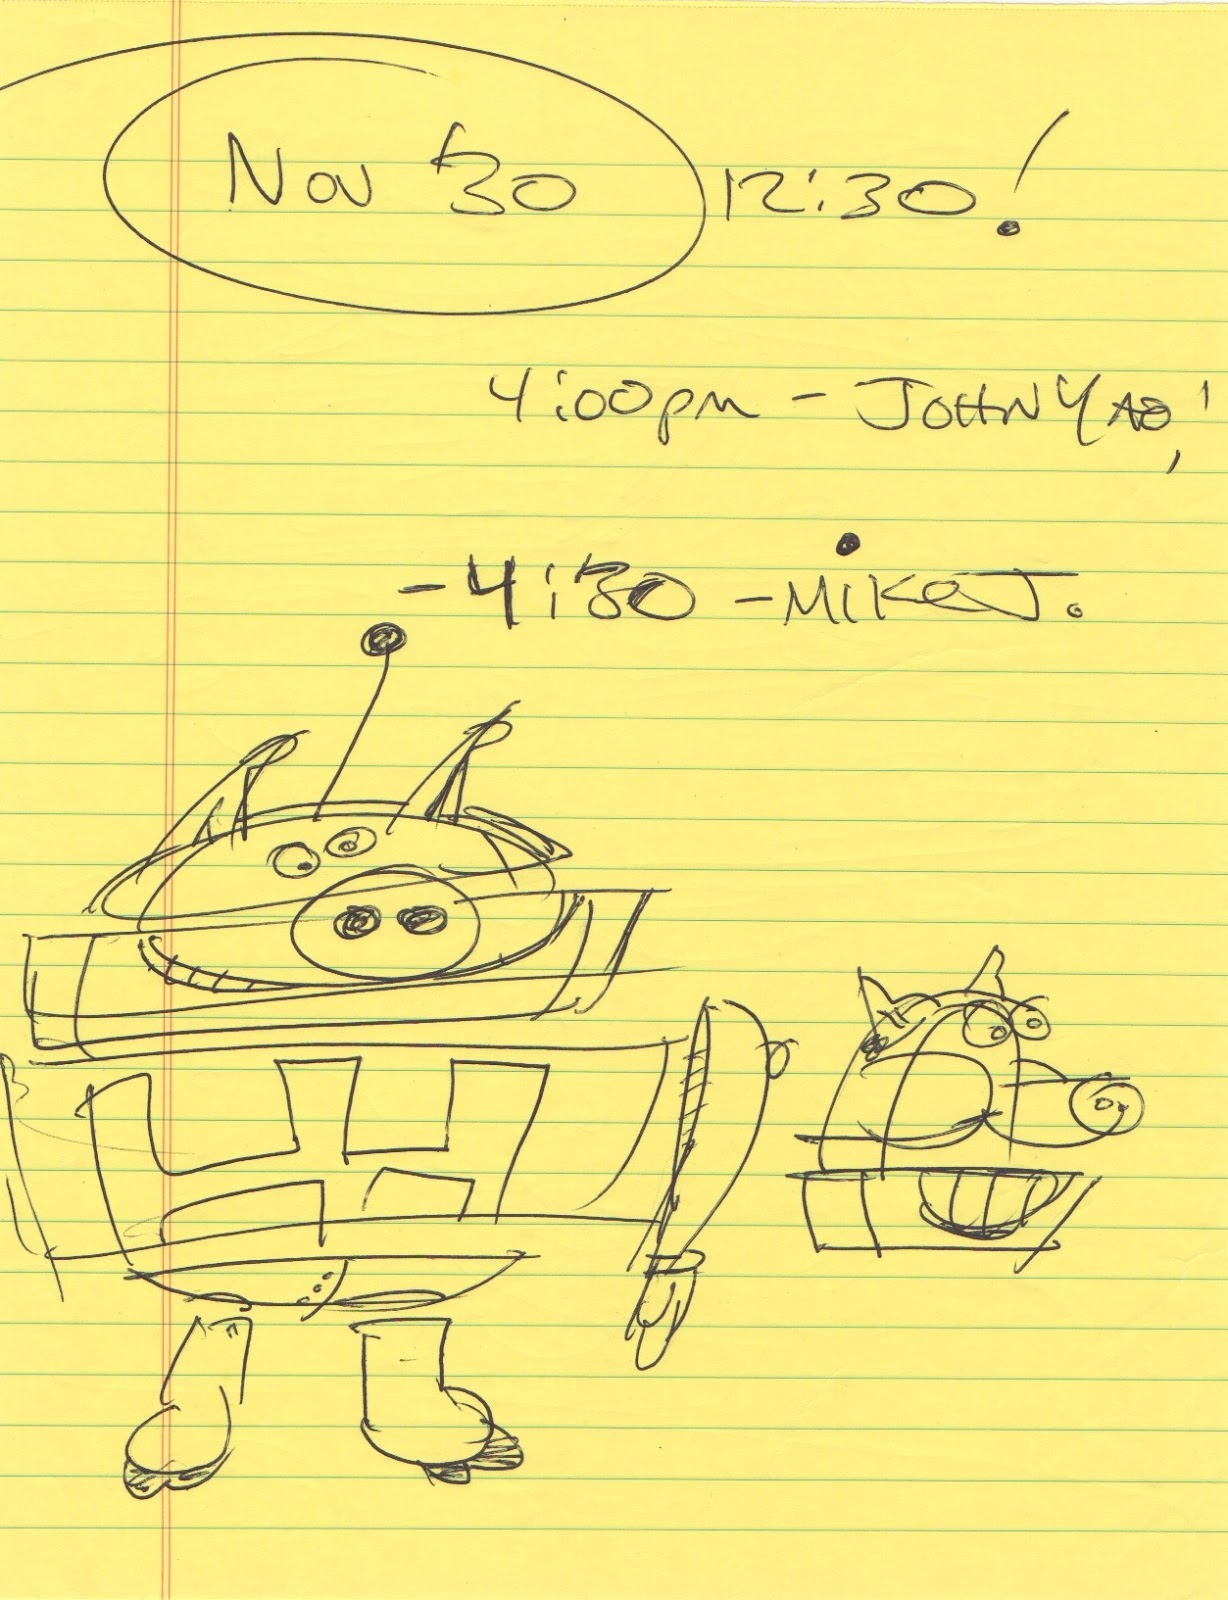 Nov 30 12:30!
4:00pm - JOHN YAO!
- 4:30 - MIKE J.